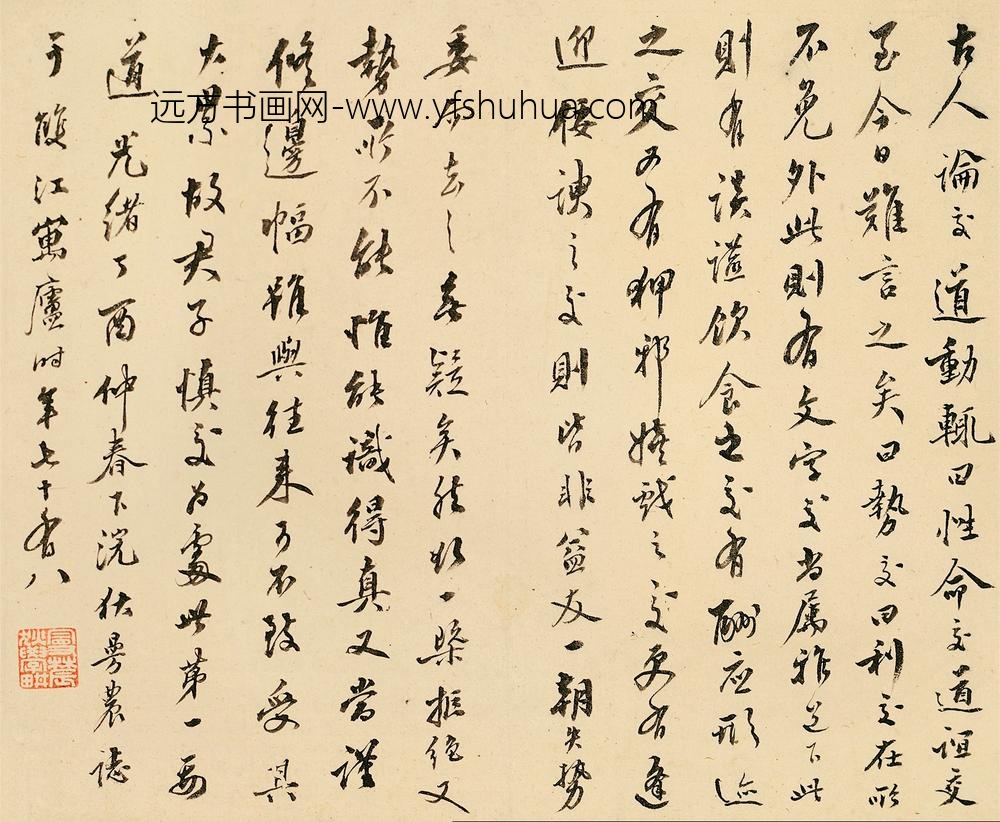 古人論交道動輒曰性命交道誼交
至今日難言之矣曰勢交曰利交在所
不免外此則有文字交尚属雅道下此
則有談讌飲食之交有酬应形迹
之交又有狎邪嬉戏之交更有逢
迎 諛之交則皆非益友一朝失势
委 去之無疑矣然欲一槩拒绝又
勢所不能惟能識得真又當謹
修邊幅雖與往来可不致受其
大累故君子慎交為處世第一要
道光绪丁酉仲春下浣 曼農誌
于雙江寓廬时年七十有八
远方书画网-www.yfshuhua.com